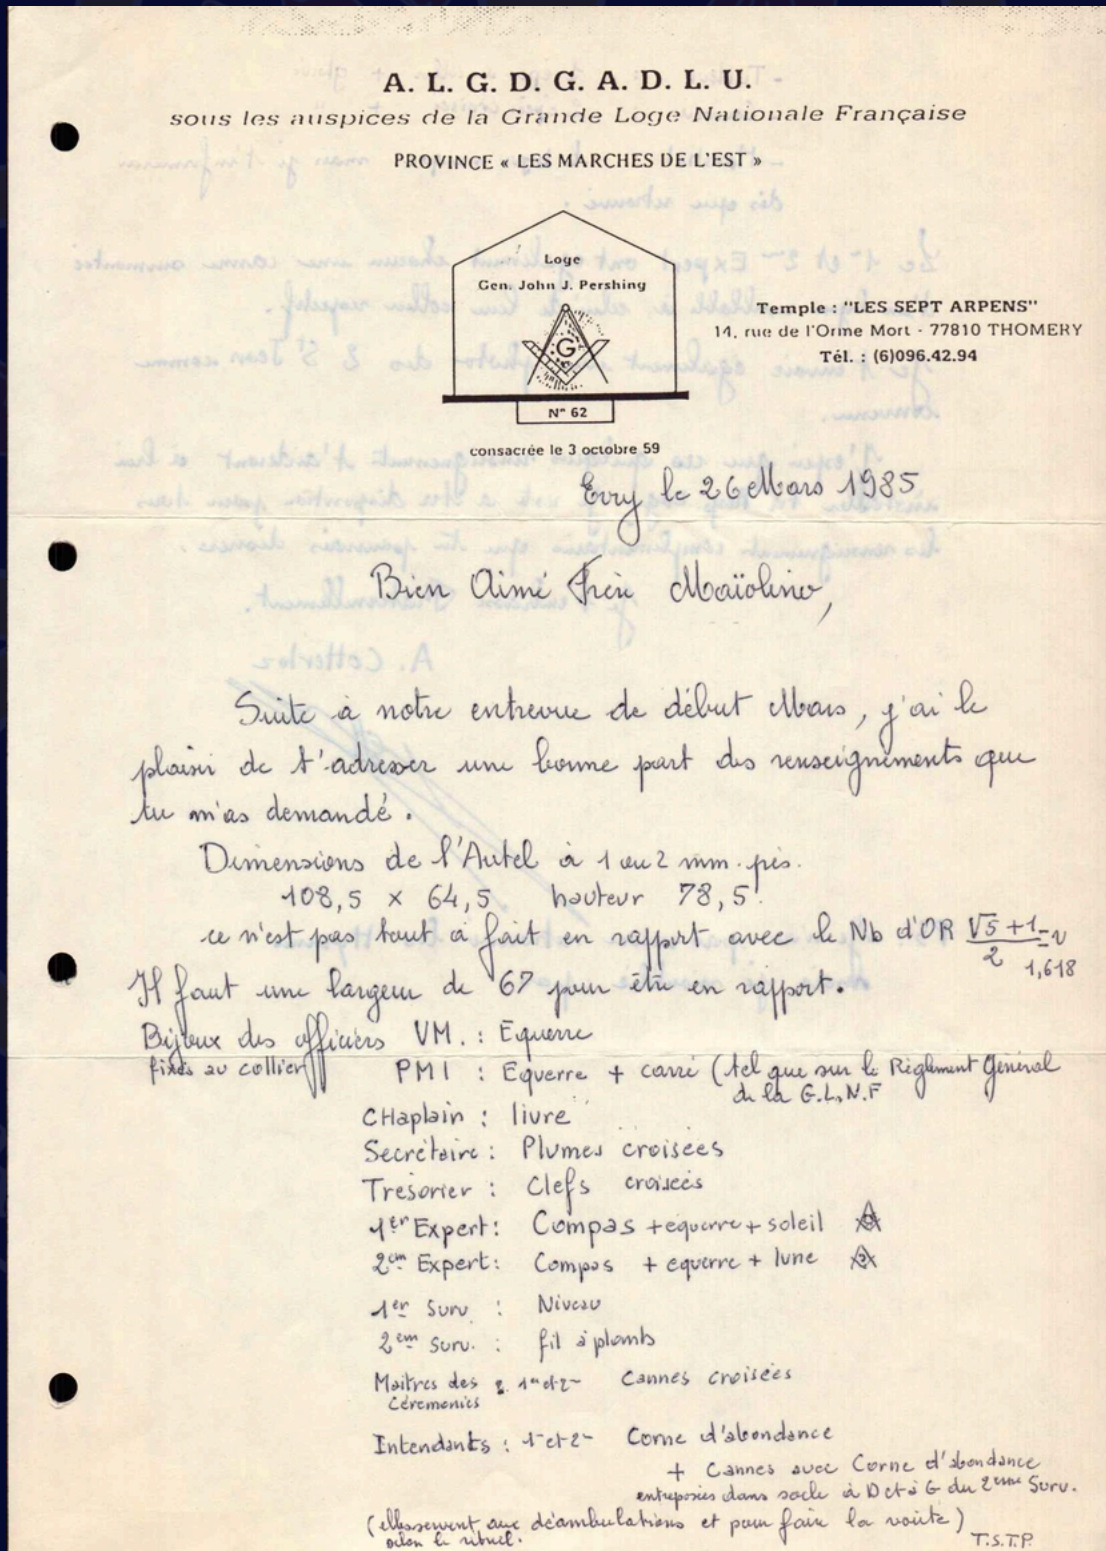 A. L. G. D. G. A. D. L. U.
sous les auspices de la Grande Loge Nationale Française
PROVINCE « LES MARCHES DE L'EST »
Loge
Gen. John J. Pershing
G
N° 62
consacrée le 3 octobre 59
Temple : "LES SEPT ARPENS"
14, rue de l'Orme Mort - 77810 THOMERY
Tél. : (6)096.42.94
Evry le 26 Mars 1985
Bien Aimé Frère Maïolino,
Suite à notre entrevue de début Mars, j'ai le
plaisir de t'adresser une bonne part des renseignements que
tu m'as demandé.
Dimensions de l'Autel à 1 ou 2 mm. près.
108,5 x 64,5 hauteur 78,5.
ce n'est pas tout à fait en rapport avec le Nb d'OR √5 + 1 / 2 = 1,618
Il faut une largeur de 67 pour être en rapport.
Bijoux des officiers VM. : Equerre
fixés au collier
PMI : Equerre + carré (tel que sur le Règlement Général
de la G.L.N.F
CHaplain : livre
Secrétaire : Plumes croisées
Trésorier : Clefs croisées
1er Expert : Compas + equerre + soleil
2em Expert : Compas + equerre + lune
1er Surv : Niveau
2em Surv. : fil à plomb
Maitres des 1er et 2- Cannes croisées
Cérémonies
Intendants : 1- et 2- Corne d'abondance
+ Cannes avec Corne d'abondance
entreposées dans socle à D et à G du 2eme Surv.
(elles servent aux déambulations et pour faire la voûte)
selon le rituel.
T.S.T.P.